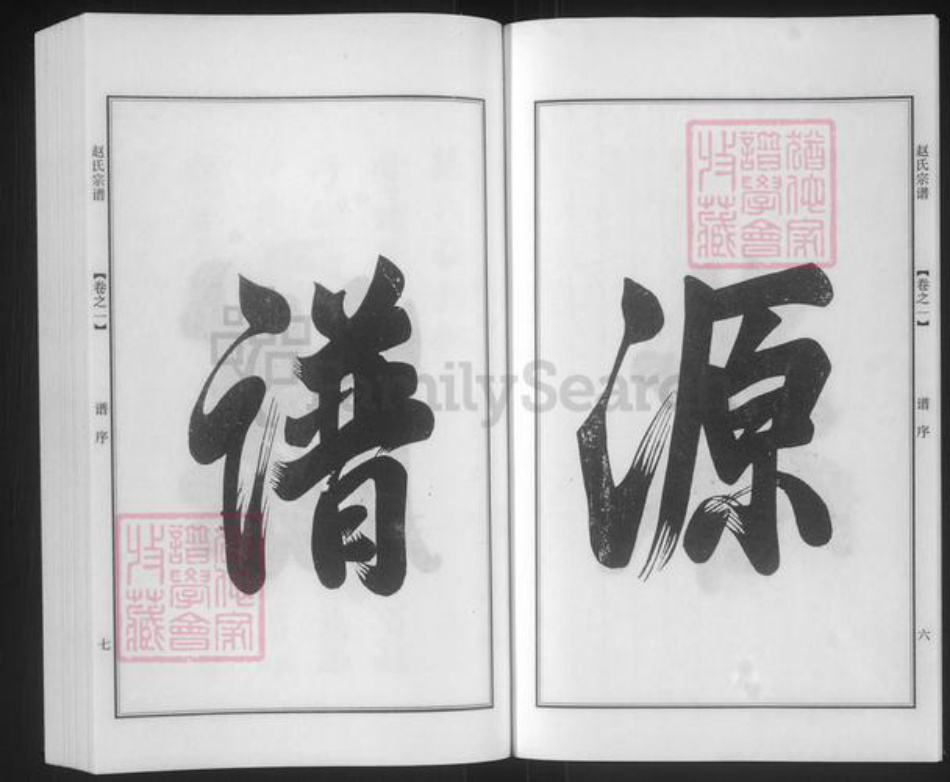 赵氏宗谱
【卷之一】
谱序
六
源
猶他家
譜學會
收藏
赵氏宗谱
【卷之一】
谱序
七
谱
猶他家
譜學會
收藏
FamilySearch